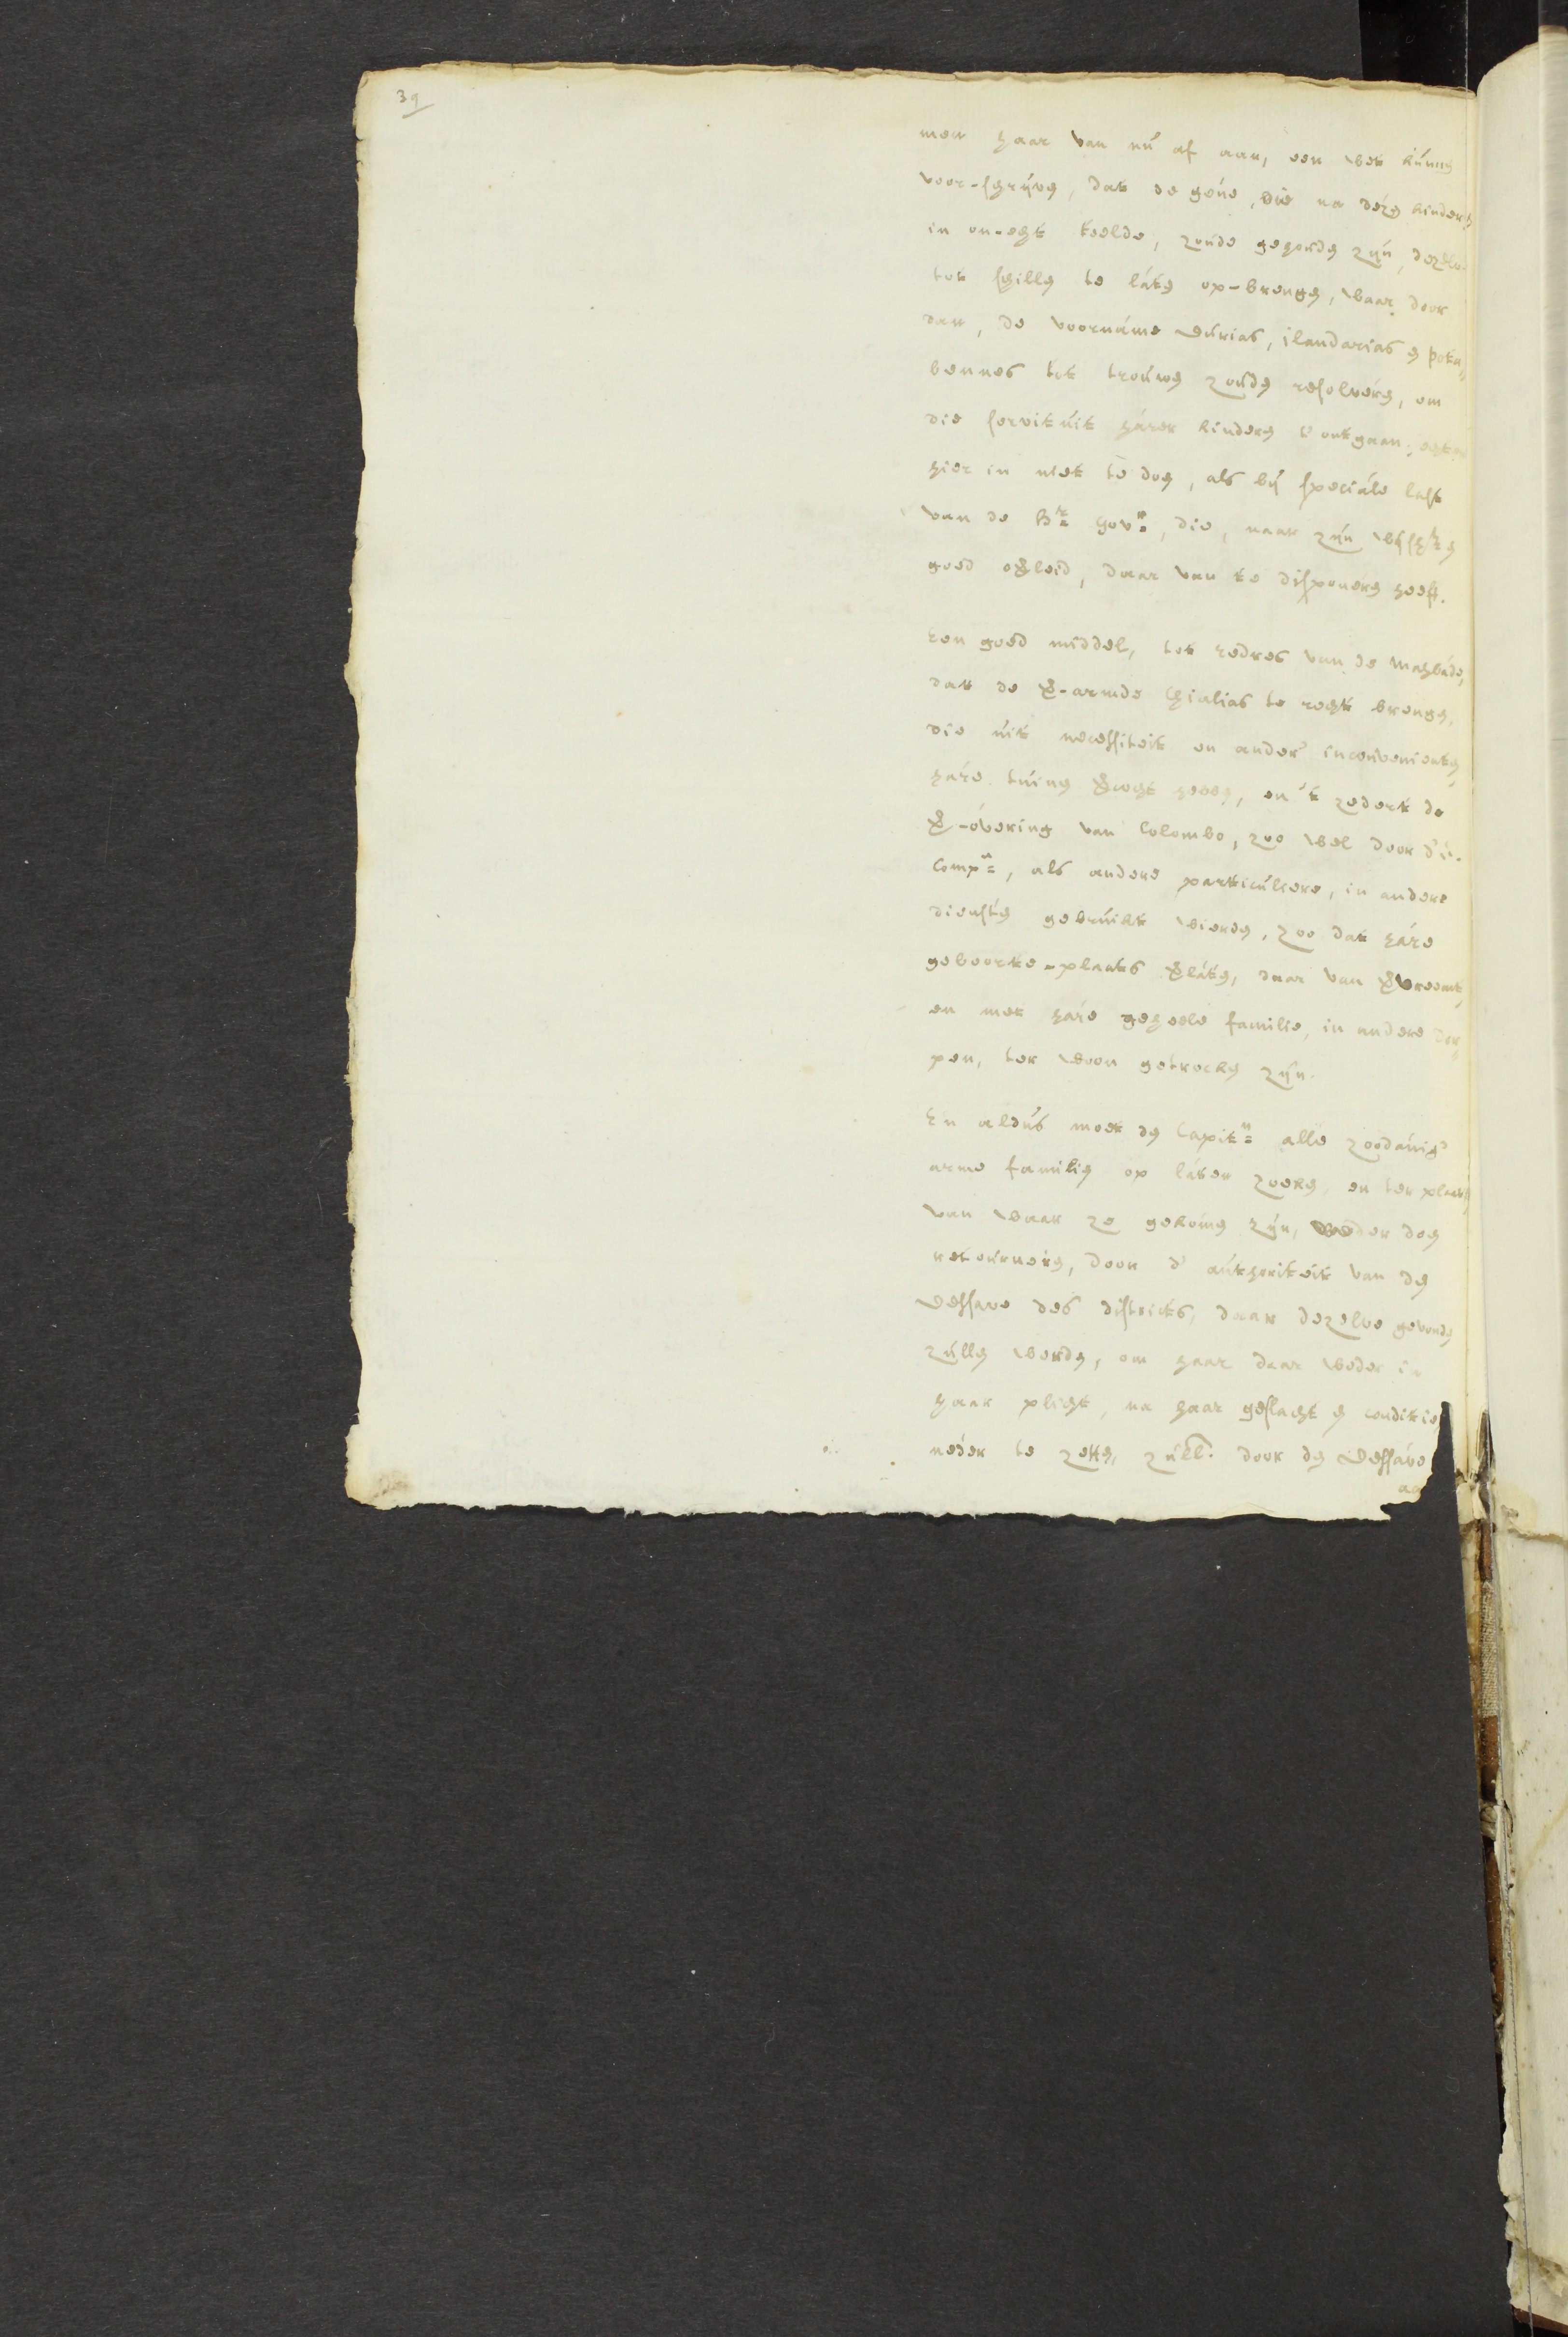 39
men haar van nú af aan, een wet kúnnen
voor-schrijven, dat de géne, die na dezen kinderen
in on-echt teelde, zoude gehouden zijn, dezelve
tot schillen te láten op-brengen, waar door
dan, de voornáme dúrias, ilandarias en pota„
bennes tot trouwen zouden resolveren, om
die servitúit hárer kinderen t' ontgaan; echter
hier in niet te doen, als bij speciále last
van de Hr. Govr., die, naar zijn
goed overleid, daar van te disponeren heeft.
Een goed middel, tot redres van de Mahabádde,
dat de ver-armde Chialias te recht brengen,
die uit necessiteit en ander' inconvenienten,
háre túinen vercocht heben, en 't zedert de
ver-overing van Colombo, zoo wel door d' E.
Compe., als andere particuliere, in andere
diensten gebruikt wierden, zoo dat háre
geboorte-plaats verláten, daar van vervreemt,
en met háre geheele familie, in andere dor„
pen, ter woon getrocken zijn.
En aldús moet den Capitn. alle zoodánig'
arme familien op láten zoeken, en ter plaats,
van waar ze gekómen zijn, weder doen
retourneren, door d' aúthoriteit van den
dessave des districts, daar dezelve gevonden
zúllen werden, om haar daar weder in
haar plicht, na haar geslacht en conditie
neder te zetten, zúll. door den dessáve